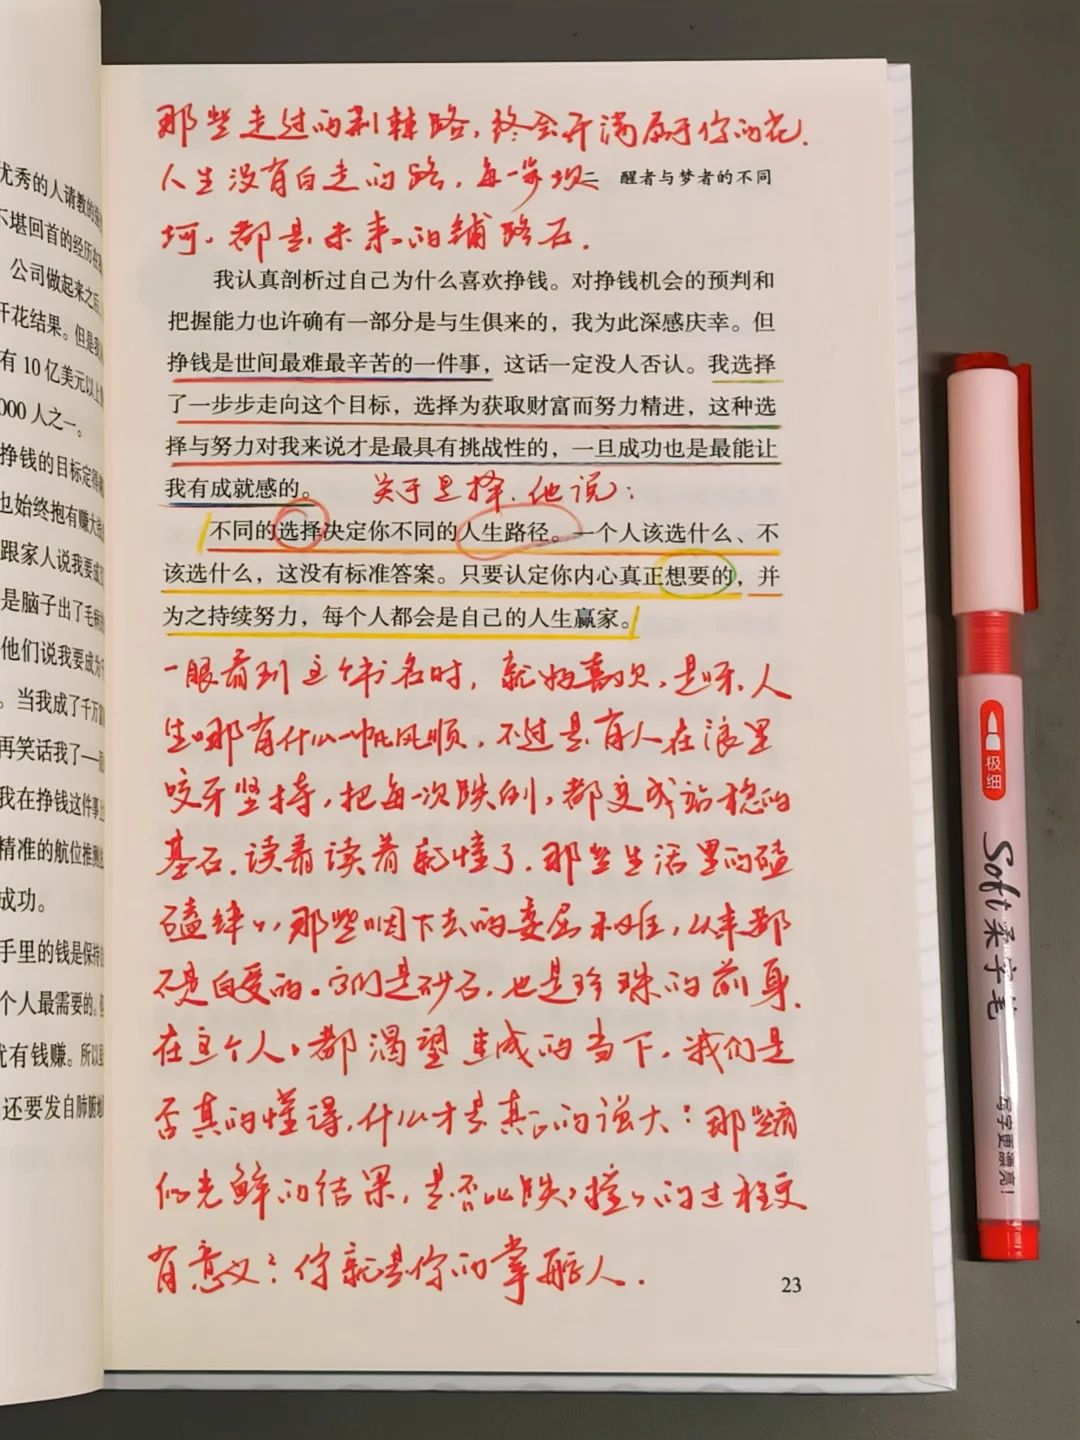 优秀的人请教的
不堪回首的经历在
公司做起来之后
开花结果。但是我
有 10 亿美元以上
000 人之一。
挣钱的目标定得
也始终抱有赚大
跟家人说我要成
是脑子出了毛病
他们说我要成为
。当我成了千万
再笑话我了——
我在挣钱这件事上
精准的航位推测
成功。
手里的钱是保持
个人最需要的。
优有钱赚。所以
还要发自肺腑地
那些走过的荆棘路，终会开满属于你的花.
人生没有白走的路，每一步坎
二 醒者与梦者的不同
坷，都是未来的铺路石.
我认真剖析过自己为什么喜欢挣钱。对挣钱机会的预判和
把握能力也许确有一部分是与生俱来的，我为此深感庆幸。但
挣钱是世间最难最辛苦的一件事，这话一定没人否认。我选择
了一步步走向这个目标，选择为获取财富而努力精进，这种选
择与努力对我来说才是最具有挑战性的，一旦成功也是最能让
我有成就感的。
关于选择，他说：
不同的选择决定你不同的人生路径。一个人该选什么、不
该选什么，这没有标准答案。只要认定你内心真正想要的，并
为之持续努力，每个人都会是自己的人生赢家。
一眼看到这个书名时，就好喜欢，是呀，人
生哪有什么一帆风顺，不过是有人在浪里
咬牙坚持，把每一次跌倒，都变成站稳的
基石，读着读着就懂了，那些生活里的磕
磕绊绊，那些咽下去的委屈和难，从来都
不是白受的。它们是砂石，也是珍珠的前身.
在这个人人都渴望速成的当下，我们是
否真的懂得，什么才是真正的强大：那些看
似光鲜的结果，是否比跌跌撞撞的过程更
有意义？你就是你的掌舵人.
23
极细
Soft 柔字笔
写字更漂亮！